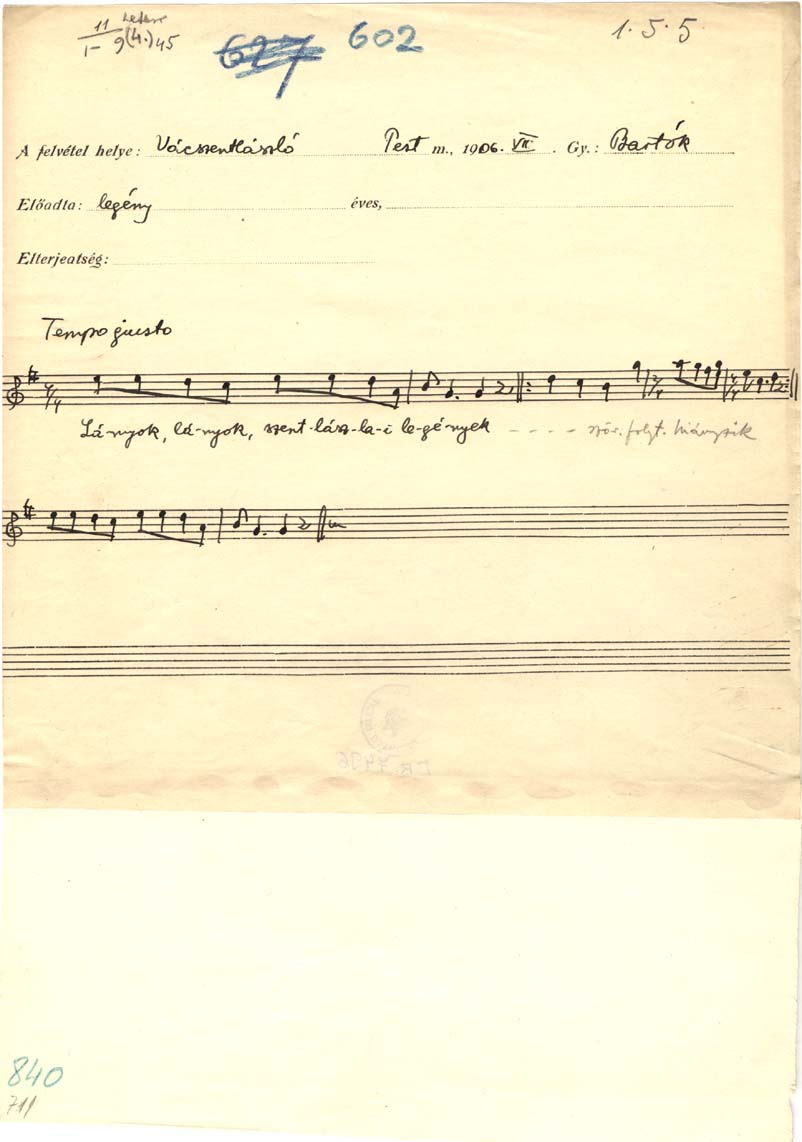 11
I- 9(4.)45
627 602
1. 5. 5
A felvétel helye: Vácszentlászló Pest m., 1906. VII. Gy.: Bartók
Előadta: legény éves,
Elterjedtség:
Tempo giusto
Lá-nyok, lá-nyok, szent-lász-la-i le-gé-nyek - - - - szöv. folyt. hiányzik
840
711